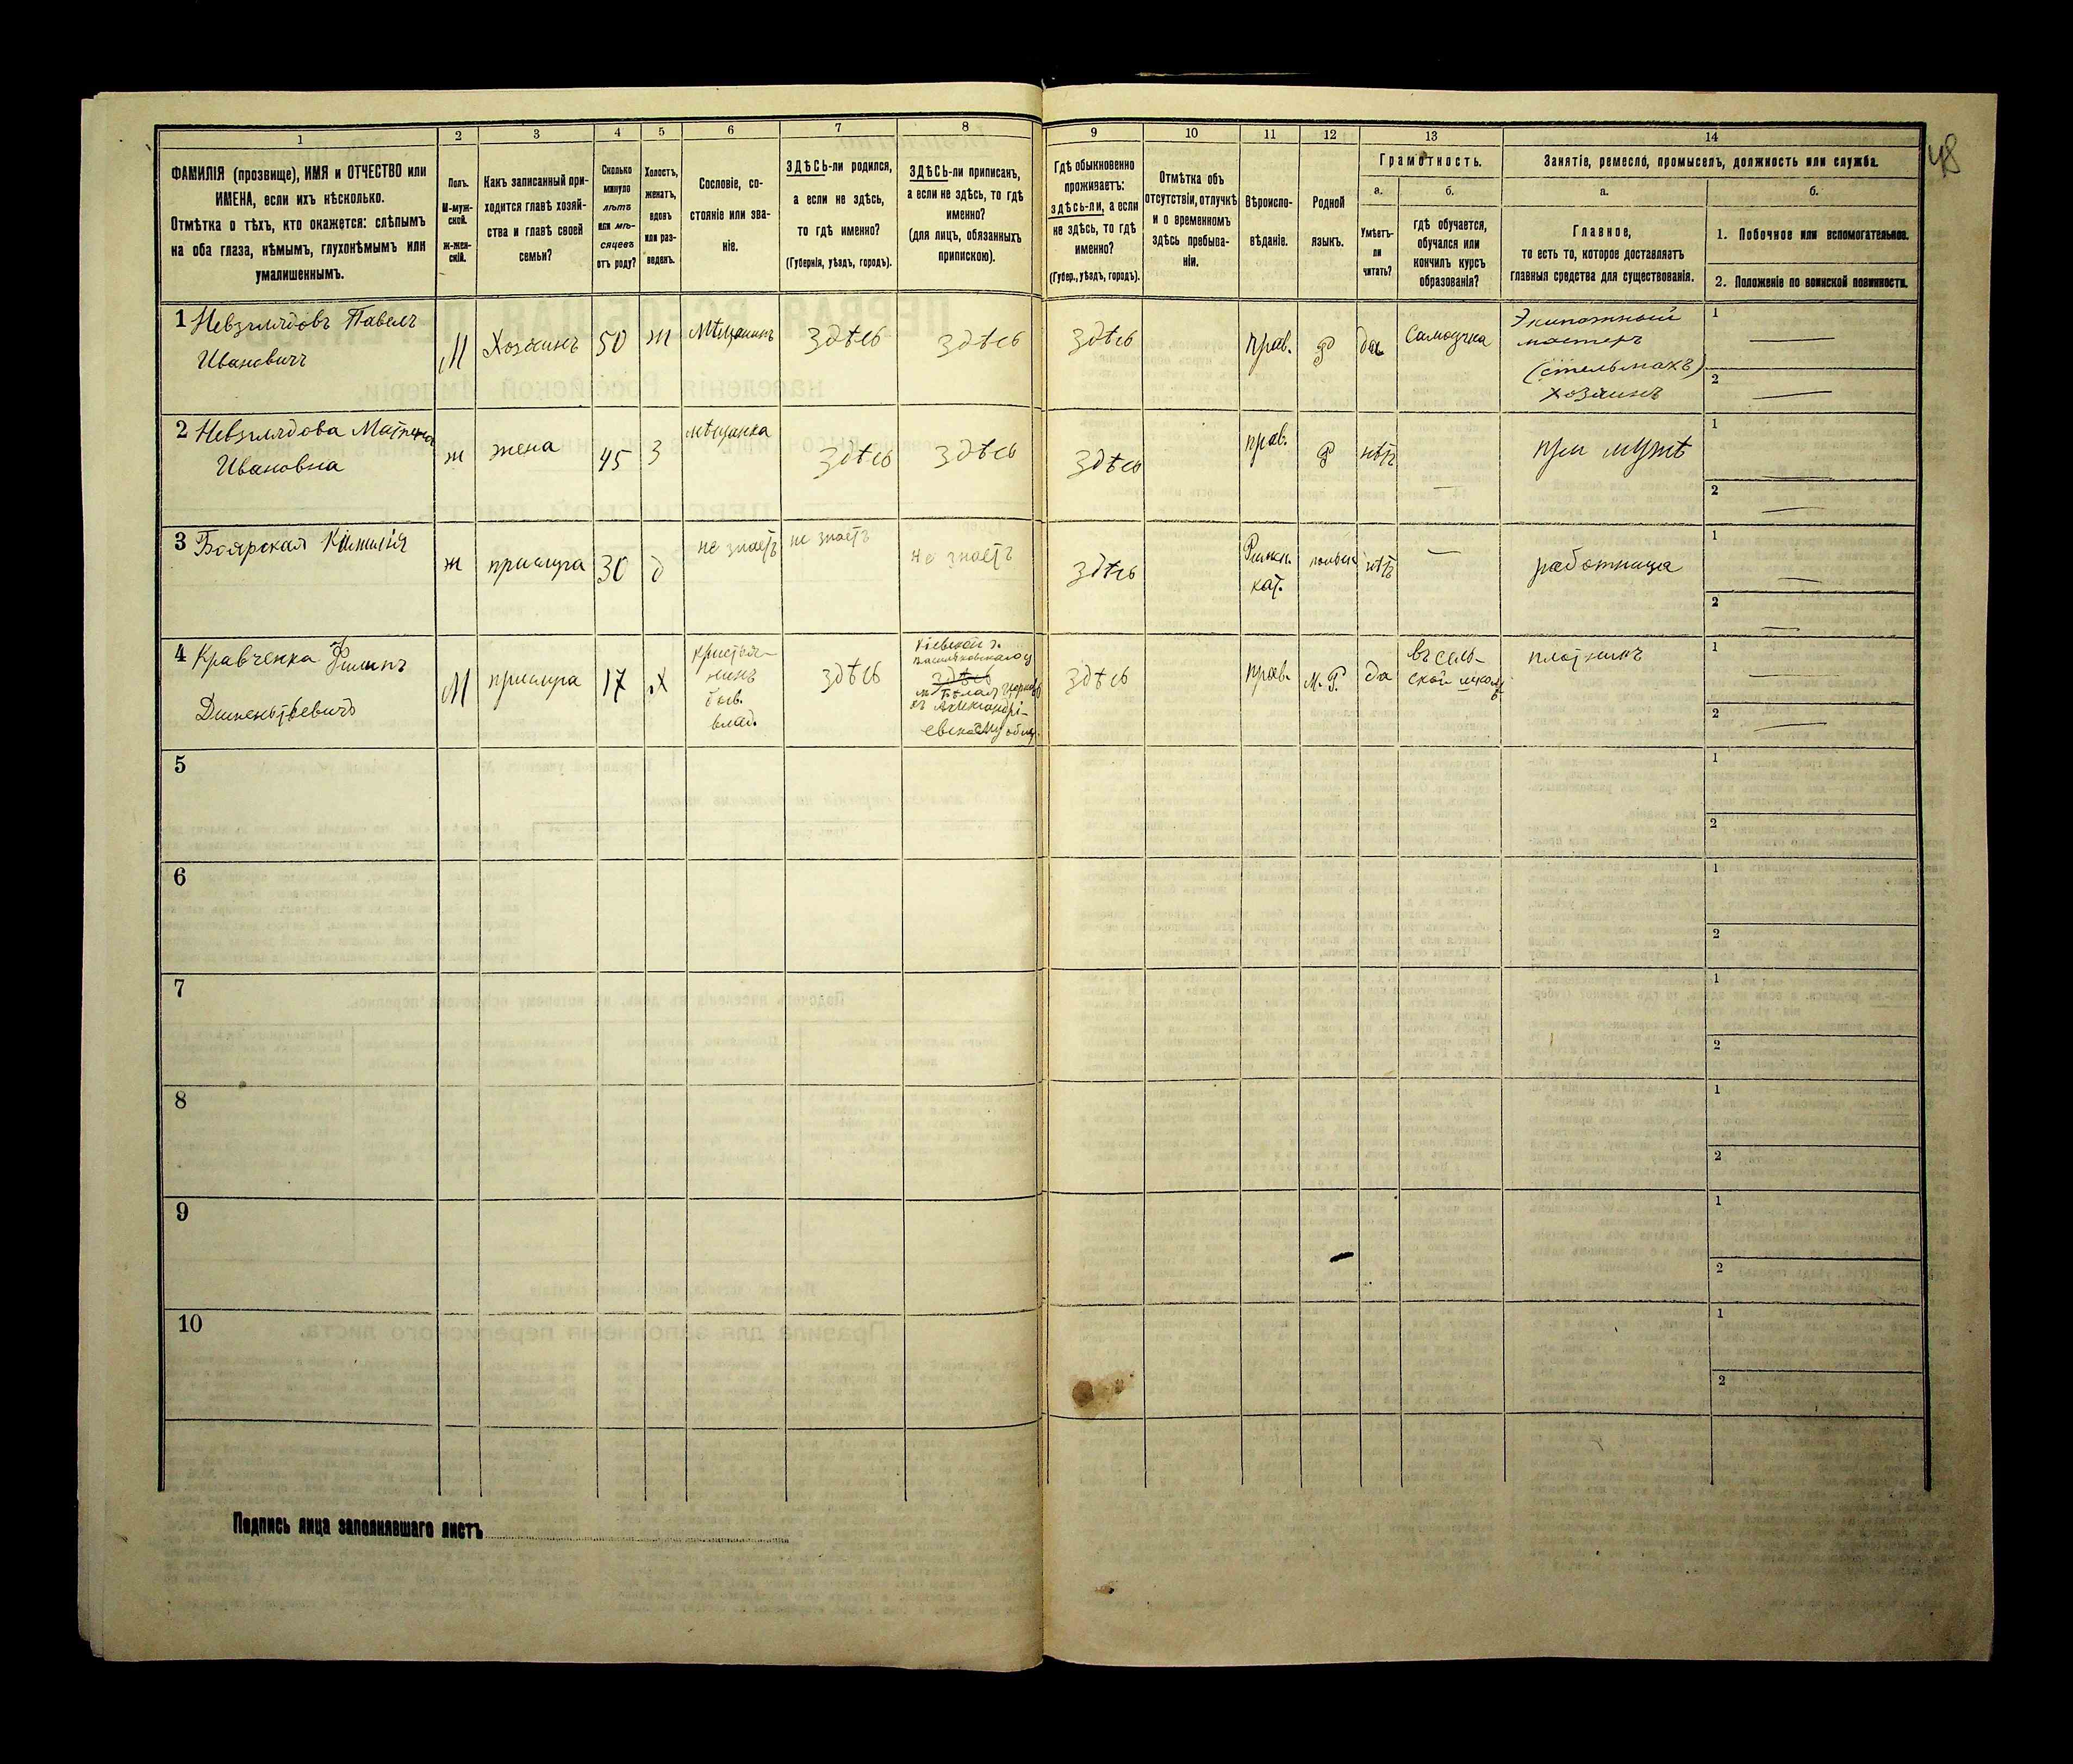 48
1 2 3 4 5 6 7 8 9 10 11 12 13 14
ФАМИЛІЯ (прозвище), ИМЯ и ОТЧЕСТВО или
ИМЕНА, если ихъ нѣсколько.
Отмѣтка о тѣхъ, кто окажется: слѣпымъ
на оба глаза, нѣмымъ, глухонѣмымъ или
умалишеннымъ.
Полъ.
М-муж-
ской.
Ж-жен-
скій.
Какъ записанный при-
ходится главѣ хозяй-
ства и главѣ своей
семьи?
Сколько
минуло
лѣтъ
или мѣ-
сяцевъ
отъ роду?
Холостъ,
женатъ,
вдовъ
или раз-
веденъ.
Сословіе, со-
стояніе или зва-
ніе.
ЗДѢСЬ-ли родился,
а если не здѣсь,
то гдѣ именно?
(Губернія, уѣздъ, городъ).
ЗДѢСЬ-ли приписанъ,
а если не здѣсь, то гдѣ
именно?
(для лицъ, обязанныхъ
припискою).
Гдѣ обыкновенно
проживаетъ:
здѣсь-ли, а если
не здѣсь, то гдѣ
именно?
(Губер., уѣздъ, городъ).
Отмѣтка объ
отсутствіи, отлучкѣ
и о временномъ
здѣсь пребыва-
ніи.
Вѣроиспо-
вѣданіе.
Родной
языкъ.
Грамотность.
а.
Умѣетъ-
ли
читать?
б.
гдѣ обучается,
обучался или
кончилъ курсъ
образованія?
Занятіе, ремесло, промыселъ, должность или служба.
а.
Главное,
то есть то, которое доставляетъ
главныя средства для существованія.
б.
1. Побочное или вспомогательное.
2. Положеніе по воинской повинности.
1 Невзглядовъ Павелъ
Ивановичъ
М
Хозяинъ
50
ж
Мѣщанинъ
здѣсь
здѣсь
здѣсь
прав.
Р
да
Самоучка
Экипажный
мастеръ
(стельмахъ)
хозяинъ
1 —
2 —
2 Невзглядова Матрена
Ивановна
ж
жена
45
З
мѣщанка
здѣсь
здѣсь
здѣсь
прав.
Р
нѣтъ
—
при мужѣ
1 —
2 —
3 Боярская
ж
прислуга
30
д
не знаетъ
не знаетъ
не знаетъ
здѣсь
Римск.
кат.
польск
нѣтъ
—
работница
1 —
2 —
4 Кравченка Филипъ
Дементьевичъ
М
прислуга
17
Х
кристья-
нинъ
быв.
влад.
здѣсь
Кіевской г.
Васильковскаго у
здѣсь
м Бѣлая Церковь
къ Александрі-
евскому общ.
здѣсь
прав.
М. Р.
да
въ сель-
ской школѣ
плотникъ
1 —
2 —
5
1
2
6
1
2
7
1
2
8
1
2
9
1
2
10
1
2
Подпись лица заполнявшаго листъ